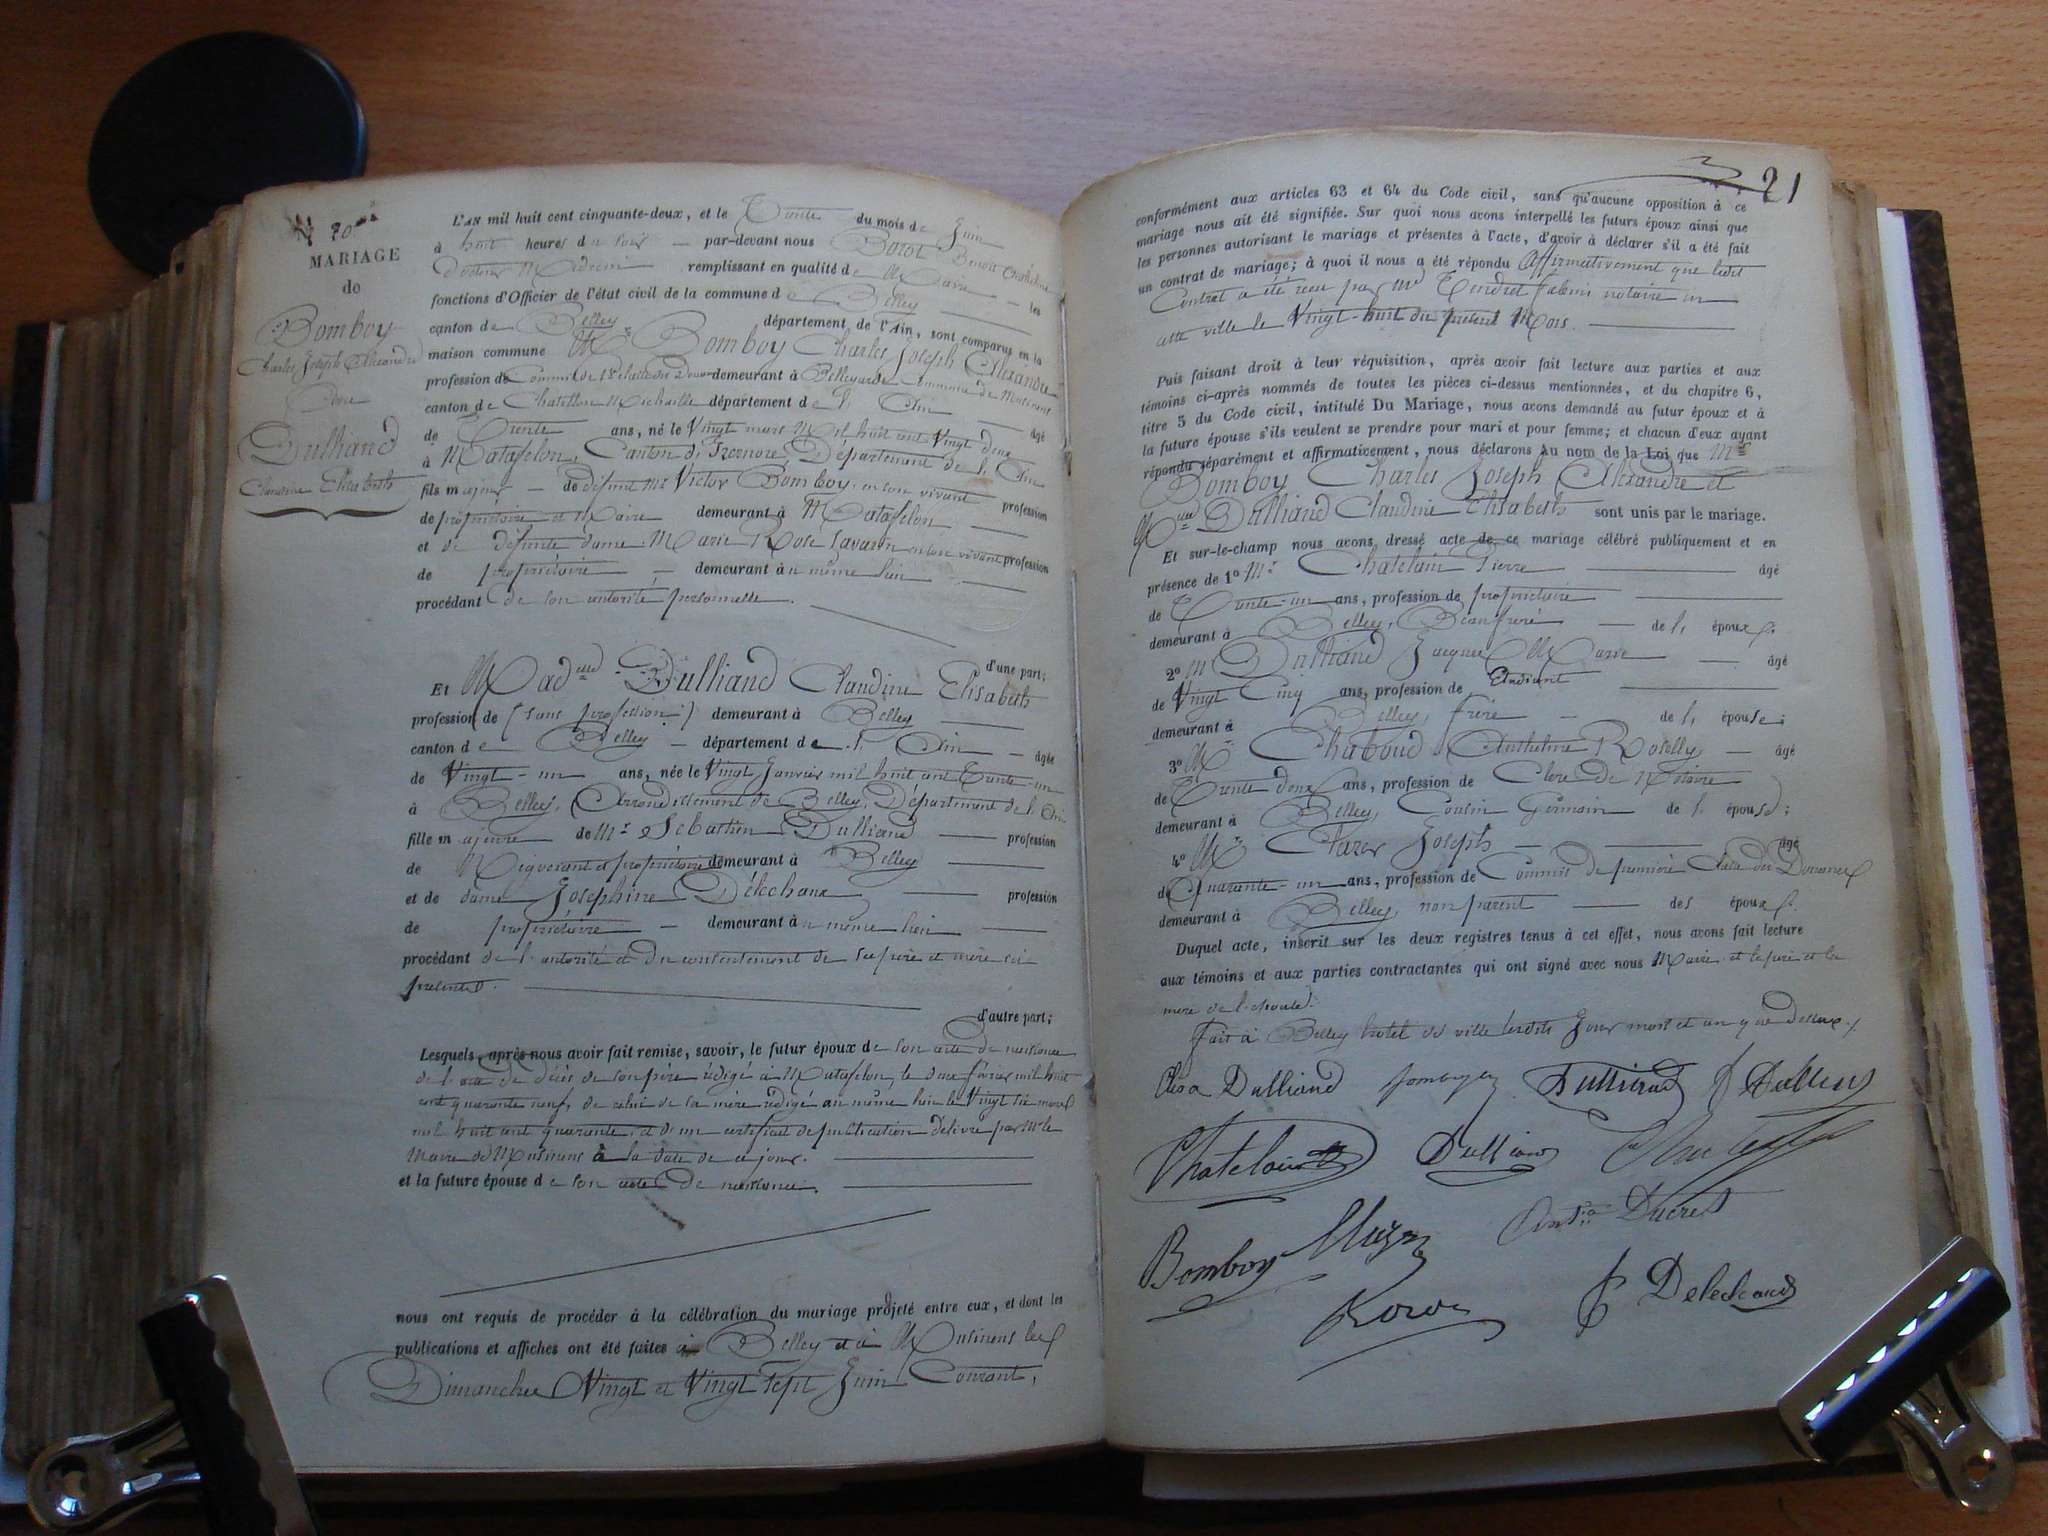 N° 20
MARIAGE
de
Bomboy
Charles Joseph Alexandre
Avec
Dulliand
Claudine Elisabeth
L'AN mil huit cent cinquante-deux, et le Trente du mois de Juin
à huit heures du soir par-devant nous Benoit
Docteur Médecin remplissant en qualité de Maire les
fonctions d'Officier de l'état civil de la commune de Belley
canton de Belley département de l'Ain, sont comparus en la
maison commune Mr Bomboy Charles Joseph Alexandre
profession de Commis de 1re classe des Douanes demeurant à Bellegarde Commune de Musinens
canton de Chatillon Michaille département de l'Ain âgé
de Trente ans, né le Vingt mars Mil huit cent Vingt deux
à Matafelon, Canton d'Izernore, Département de l'Ain
fils majeur de défunt Mr Victor Bomboy, en son vivant profession
de propriétaire et Maire demeurant à Matafelon
et de défunte dame Marie Rose Savarin en son vivant profession
de propriétaire demeurant au même lieu
procédant de son autorité personnelle.
d'une part;
Et Madelle Dulliand Claudine Elisabeth
profession de (sans profession) demeurant à Belley
canton de Belley département de l'Ain âgée
de Vingt-un ans, née le Vingt Janvier mil huit cent Trente-un
à Belley, Arrondissement de Belley, Département de l'Ain
fille majeure de Mr Sébastien Dulliand profession
de Négociant et propriétaire demeurant à Belley
et de dame Joséphine Délechaux profession
de propriétaire demeurant au même lieu
procédant de l'autorité et du consentement de ses père et mère ici
présents.
d'autre part;
Lesquels, après nous avoir fait remise, savoir, le futur époux de son acte de naissance
de l'acte de décès de son père rédigé à Matafelon, le février mil huit
cent quarante neuf, de celui de sa mère rédigé au même lieu le Vingt six mars
mil huit cent quarante, et de un certificat de publication délivré par Mr le
Maire de Musinens à la date de ce jour.
et la future épouse de son acte de naissance.
nous ont requis de procéder à la célébration du mariage projeté entre eux, et dont les
publications et affiches ont été faites à Belley et à Musinens les
Dimanches Vingt et Vingt sept Juin Courant,
21
conformément aux articles 63 et 64 du Code civil, sans qu'aucune opposition à ce
mariage nous ait été signifiée. Sur quoi nous avons interpellé les futurs époux ainsi que
les personnes autorisant le mariage et présentes à l'acte, d'avoir à déclarer s'il a été fait
un contrat de mariage; à quoi il nous a été répondu Affirmativement que ledit
Contrat a été reçu par Me Tendret notaire en
cette ville le Vingt-huit du présent Mois.
Puis faisant droit à leur réquisition, après avoir fait lecture aux parties et aux
témoins ci-après nommés de toutes les pièces ci-dessus mentionnées, et du chapitre 6,
titre 5 du Code civil, intitulé Du Mariage, nous avons demandé au futur époux et à
la future épouse s'ils veulent se prendre pour mari et pour femme; et chacun d'eux ayant
répondu séparément et affirmativement, nous déclarons au nom de la Loi que Mr
Bomboy Charles Joseph Alexandre et
Melle Dulliand Claudine Elisabeth sont unis par le mariage.
Et sur-le-champ nous avons dressé acte de ce mariage célébré publiquement et en
présence de 1° Mr Chatelain Pierre âgé
de Trente-un ans, profession de propriétaire
demeurant à Belley, Beaufrère de l' époux;
2° Mr Dulliand Jacques Marie âgé
de Vingt Cinq ans, profession de Etudiant
demeurant à Belley, frère de l' épouse;
3° Mr Chaboud Anthelme Roselly âgé
de Trente deux ans, profession de Clerc de Notaire
demeurant à Belley, Cousin Germain de l' épouse;
4° Mr Joseph âgé
de Quarante-un ans, profession de Commis de première Classe des Douanes
demeurant à Belley, non parent des époux.
Duquel acte, inscrit sur les deux registres tenus à cet effet, nous avons fait lecture
aux témoins et aux parties contractantes qui ont signé avec nous Maire et le père et la
mère de l'épouse.
Fait à Belley hôtel de ville lesdits Jour mois et an que dessus.
Elisa Dulliand Dulliand
Chatelain Dulliand
Bomboy Ducrest
Delechaux